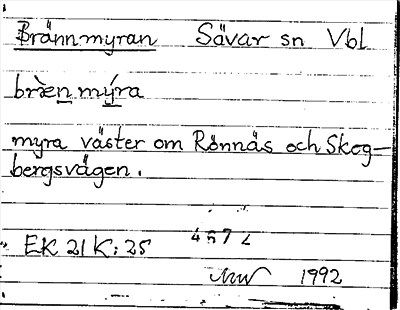 Brännmyran Sävar sn Vbl
bræ̀n mýra
myra väster om Rönnäs och Skog-
bergsvägen.
EK 21 K: 25 4572
1992